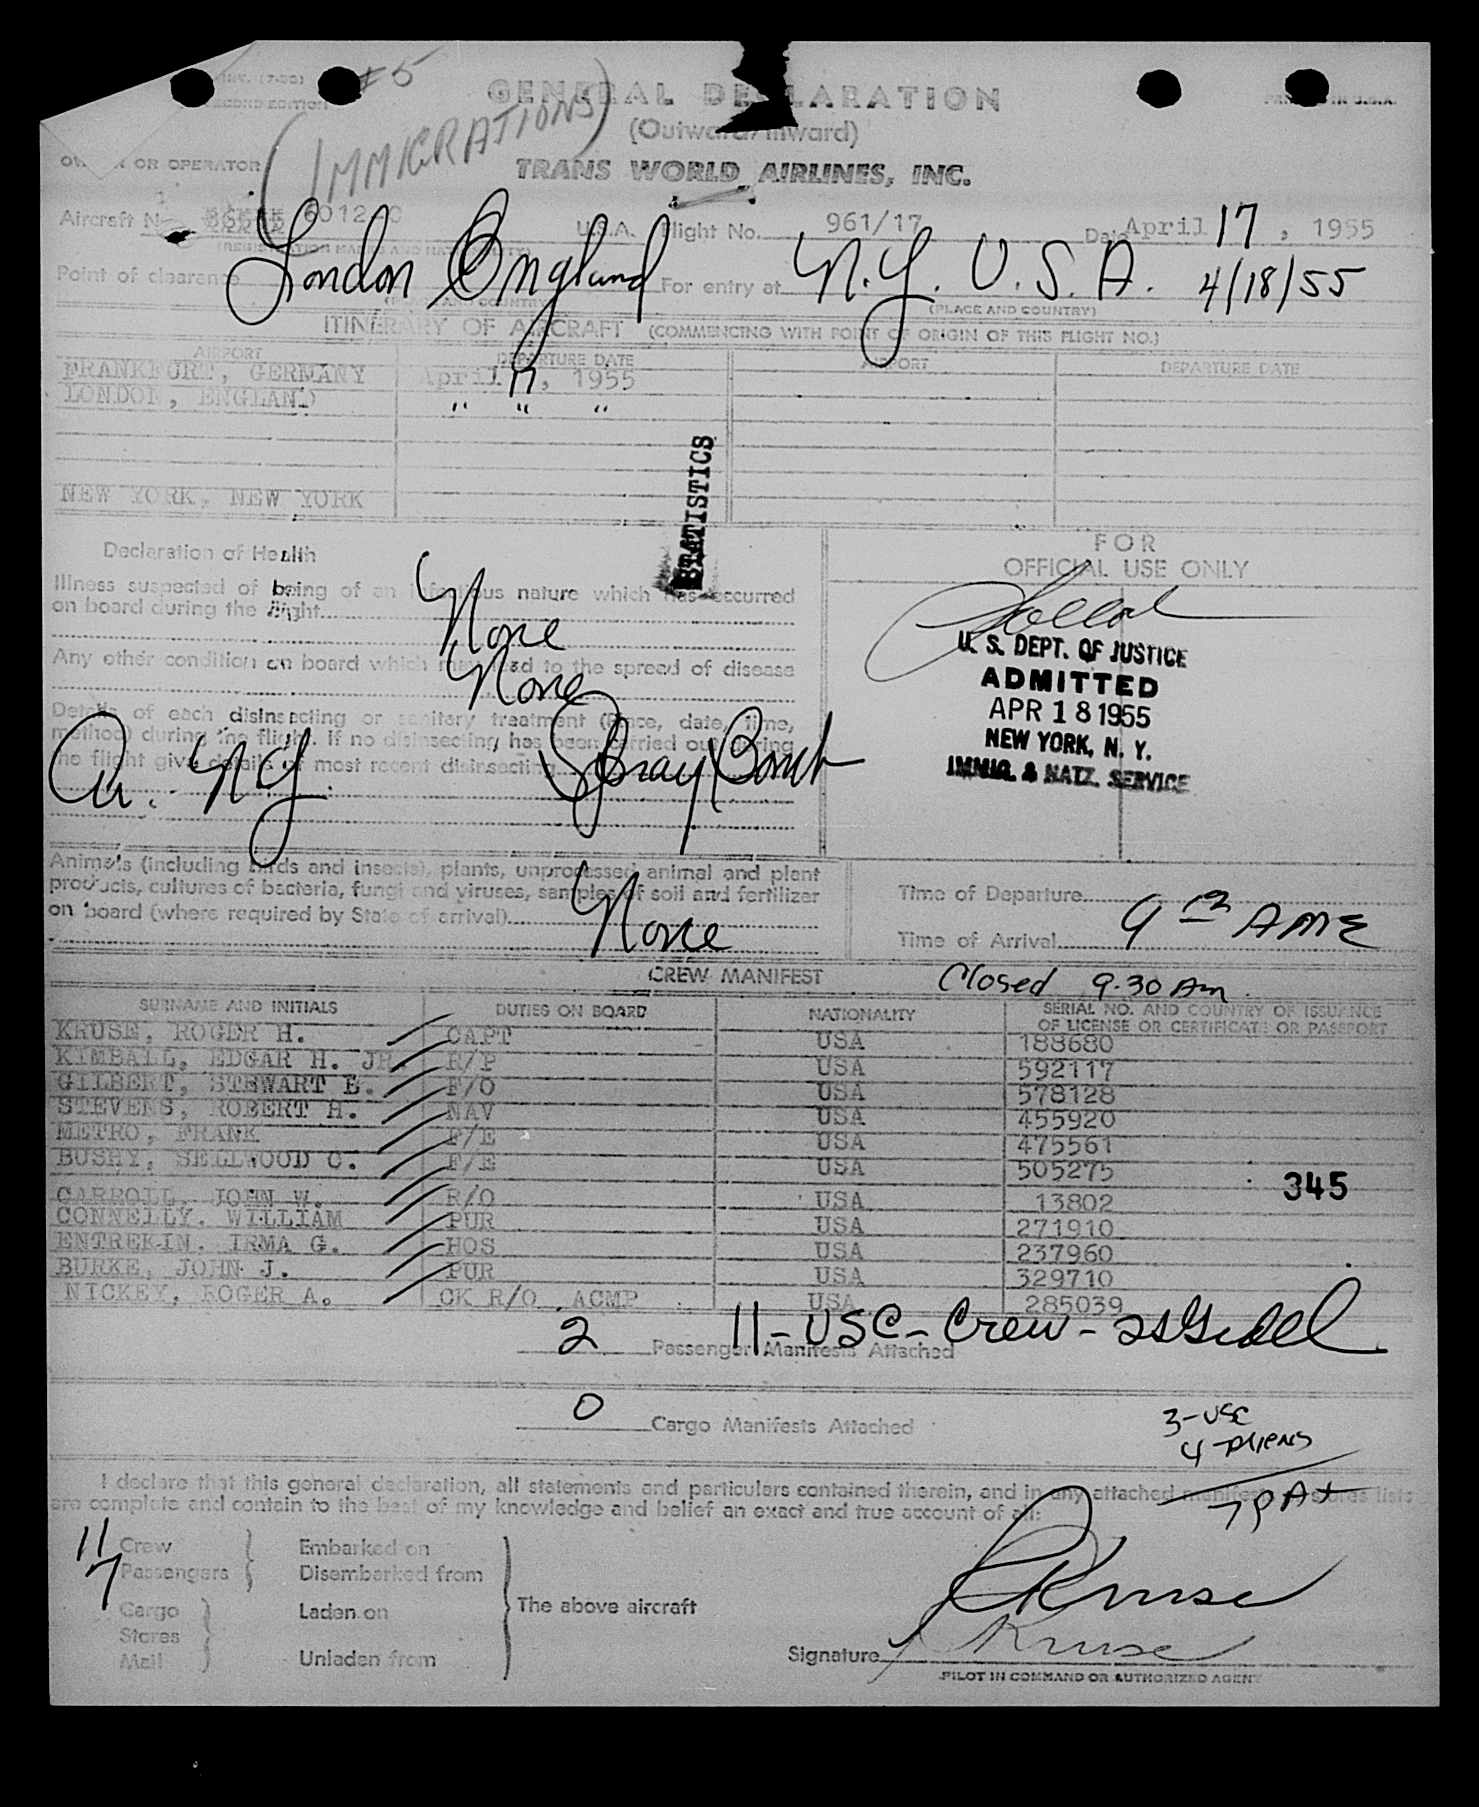 SECOND EDITION
#5
GENERAL DECLARATION
(Outward/Inward)
PRINTED IN U.S.A.
OWNER OR OPERATOR
(IMMIGRATIONS)
TRANS WORLD AIRLINES, INC.
Aircraft No. 6012 U.S.A. Flight No. 961/17 Date April 17, 1955
Point of clearance London England For entry at N.Y. U.S.A. 4/18/55
(PLACE AND COUNTRY)
ITINERARY OF AIRCRAFT (COMMENCING WITH POINT OF ORIGIN OF THIS FLIGHT NO.)
AIRPORT DEPARTURE DATE AIRPORT DEPARTURE DATE
FRANKFURT, GERMANY April 17, 1955
LONDON, ENGLAND " " "
NEW YORK, NEW YORK
STATISTICS
Declaration of Health
Illness suspected of being of an infectious nature which has occurred
on board during the flight
None
Any other condition on board which may lead to the spread of disease
None
Details of each disinsecting or sanitary treatment (Place, date, time,
method) during the flight. If no disinsecting has been carried out during
the flight give details of most recent disinsecting
Ar. NY Spray Bomb
FOR
OFFICIAL USE ONLY
U. S. DEPT. OF JUSTICE
ADMITTED
APR 18 1955
NEW YORK, N. Y.
IMMIG. & NATZ. SERVICE
Animals (including birds and insects), plants, unprocessed animal and plant
products, cultures of bacteria, fungi and viruses, samples of soil and fertilizer
on board (where required by State of arrival)
None
Time of Departure
Time of Arrival
CREW MANIFEST
Closed 9.30 Am
SURNAME AND INITIALS DUTIES ON BOARD NATIONALITY SERIAL NO. AND COUNTRY OF ISSUANCE
OF LICENSE OR CERTIFICATE OR PASSPORT
KRUSE, ROGER H. CAPT USA 188680
KIMBALL, EDGAR H. JR. R/P USA 592117
GILBERT, STEWART E. F/O USA 578128
STEVENS, ROBERT H. NAV USA 455920
METRO, FRANK F/E USA 475561
BUSHY, SELLWOOD C. F/E USA 505275
345
CARROLL, JOHN W. R/O USA 13802
CONNELLY, WILLIAM PUR USA 271910
ENTREKIN, IRMA G. HOS USA 237960
BURKE, JOHN J. PUR USA 329710
NICKEY, ROGER A. CK R/O ACMP USA 285039
11-USC-Crew-
2 Passenger Manifests Attached
0 Cargo Manifests Attached
3-USC
4-Aliens
I declare that this general declaration, all statements and particulars contained therein, and in any attached manifests, stores lists
are complete and contain to the best of my knowledge and belief an exact and true account of all:
11 Crew Embarked on
7 Passengers Disembarked from
Cargo Laden on The above aircraft
Stores
Mail Unladen from
Kruse
Signature Kruse
PILOT IN COMMAND OR AUTHORIZED AGENT